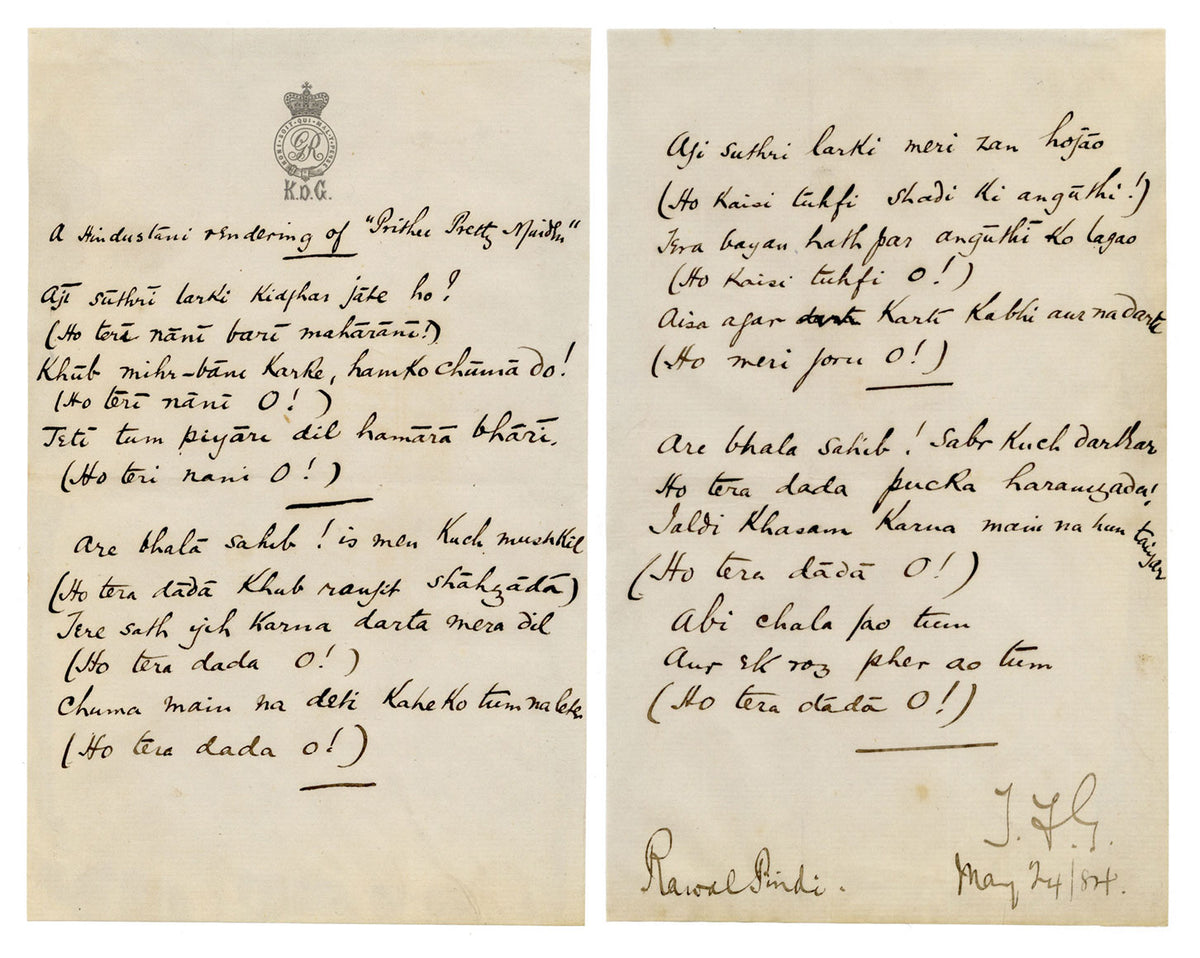 HONI · SOIT · QUI · MAL · Y · PENSE
GR
K.D.G.
A Hindustāni rendering of "Prithee Pretty Maiden"
Ajī sūthrī larki kidhar jāte ho?
(Ho terī nānī barī mahārānī!)
Khūb mihr-bāni karke, hamko chūmā do!
(Ho tērī nānī O!)
Tetī tum piyāri dil hamārā bhārī.
(Ho teri nani O!)
Are bhalā sahib! is men kuch mushkil
(Ho tera dādā khub ranjit shāhzādā)
Tere sath yih karna darta mera dil
(Ho tera dada O!)
Chuma main na deti kaheko tum na lete
(Ho tera dada O!)
Aji suthri larki meri zan hojāo
(Ho kaisi tuhfi shadi ki angūthi!)
Tera bayan hath par angūthī ko lagao
(Ho kaisi tuhfi O!)
Aisa agar kartī kabhi aur na darti
(Ho meri joru O!)
Are bhala sahib! sabr kuch darkar
Ho tera dada pucka haramzada!
Jaldi khasam karna main na hun taiyar
(Ho tera dādā O!)
Abi chala jao tum
Aur ek roz pher ao tum
(Ho tera dādā O!)
J.F.G.
Rawal Pindi. May 24/84.